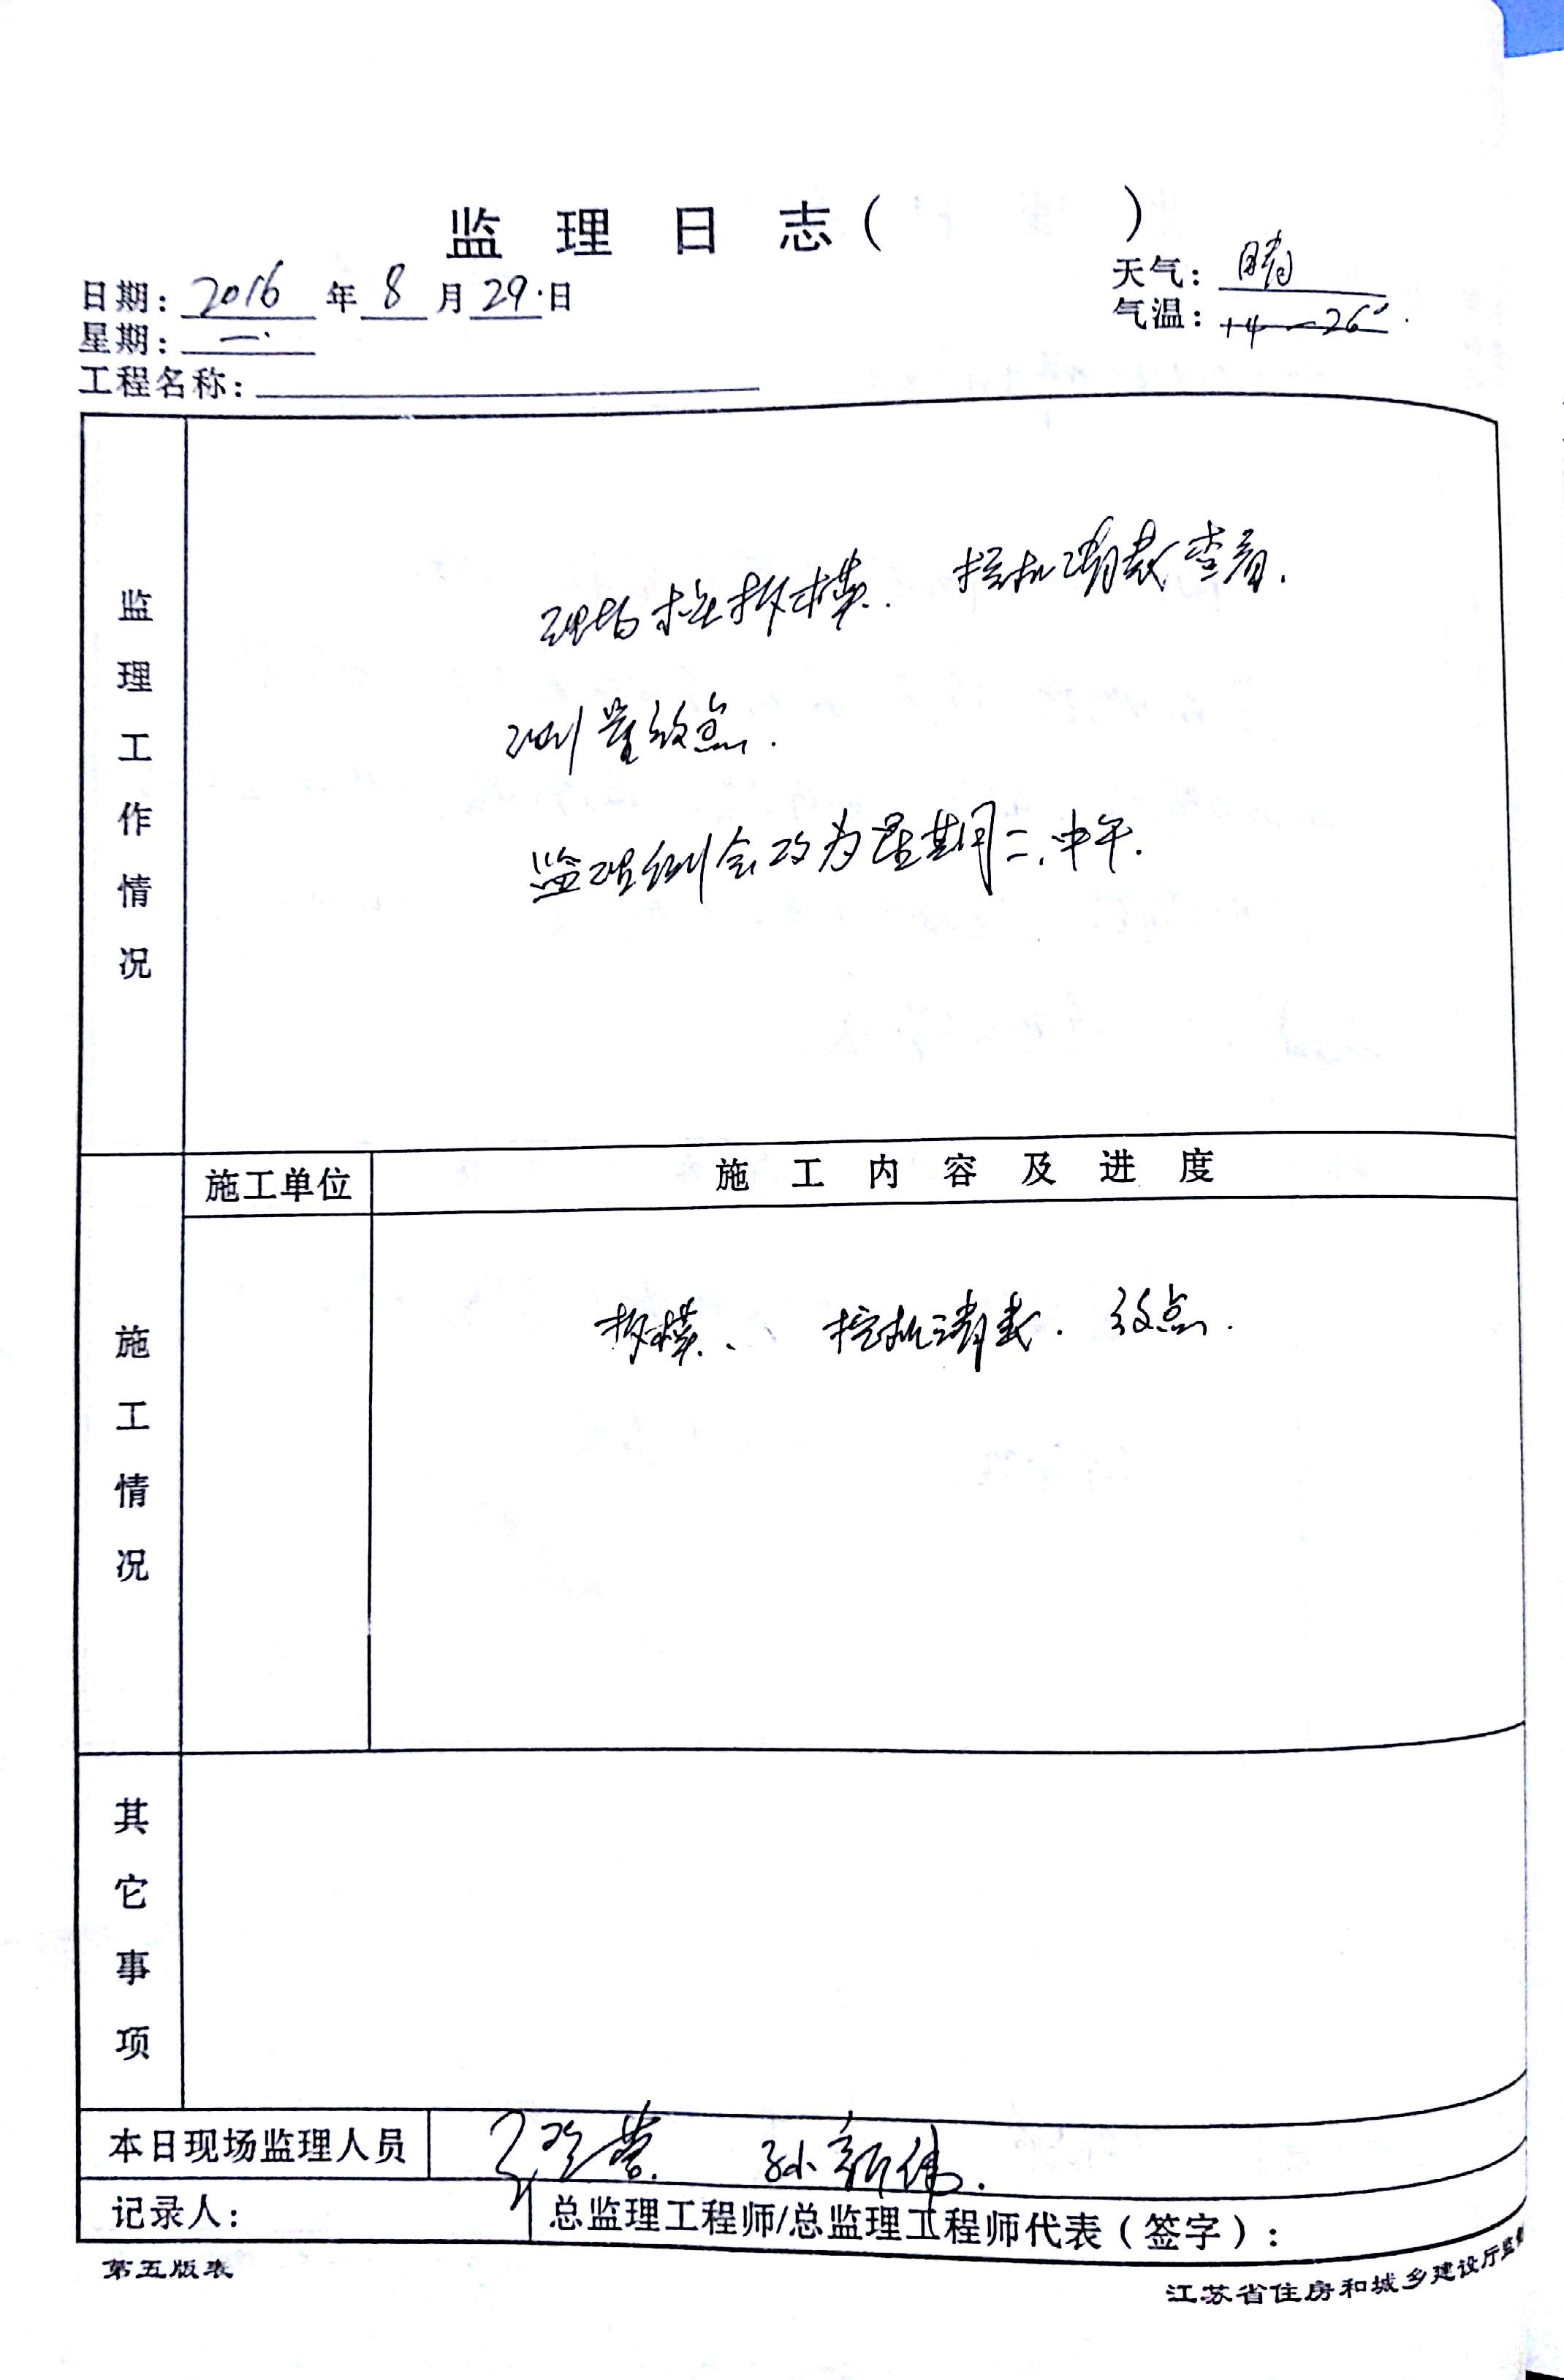 监理日志（ ）
日期：2016年8月29日 天气：晴
星期：一 气温：14—26°
工程名称：
监理工作情况
现场柱拆模. 挖机清载查看.
测量放点.
监理例会改为星期二.中午.
施工单位 施工内容及进度
施工情况
拆模、 挖机清载. 放点.
其它事项
本日现场监理人员 孙新伟.
记录人： 总监理工程师/总监理工程师代表（签字）：
第五版表
江苏省住房和城乡建设厅监